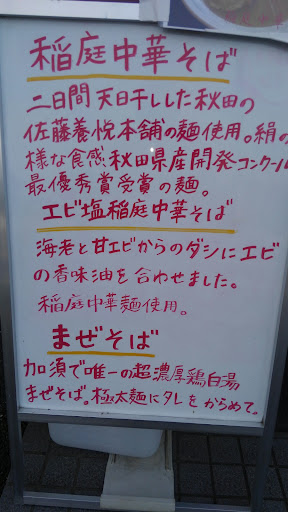 稲庭中華そば
二日間天日干しした秋田の
佐藤養悦本舗の麺使用。絹の
様な食感秋田県産開発コンクール
最優秀賞受賞の麺。
エビ塩稲庭中華そば
海老と甘エビからのダシにエビ
の香味油を合わせました。
稲庭中華麺使用。
まぜそば
加須で唯一の超濃厚鶏白湯
まぜそば。極太麺にタレをからめて。